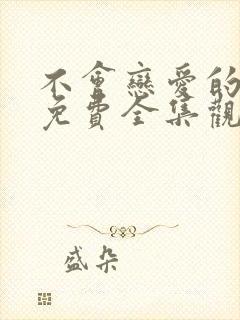 不會戀愛的
免費全集觀
盛朵